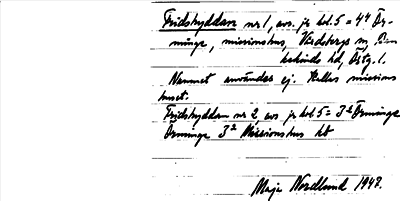 Fridshyddan nr 1, avs. jr kol. 5 = 4⁴ Ör-
minge, missionshus, Vårdsbergs sn,
bekinds hd, Östg. l.
Namnet användes ej. Kallas missions
huset.
Fridshyddan nr 2 avs jr kol 5 = 3² Örminge
Örminge 3² Missionshus hb
Maja Nordlund 1948.